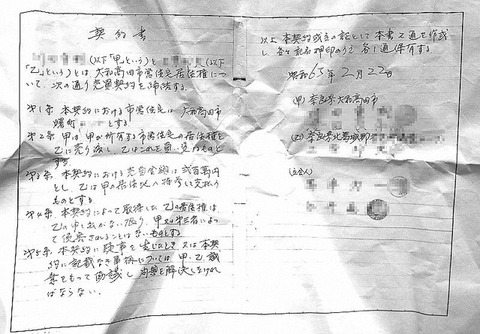 契約書
(以下「甲」という)と (以下
「乙」という)とは 大和高田市営住宅居住権につ
いて、次の通り売買契約を締結する。
第1条 本契約における市営住宅は 大和高田市
曙町 とする。
第2条 甲は甲が所有する市営住宅の居住権を
乙に売り渡し、乙はこれを買い受けるものと
する。
第3条 本契約における売買金額は弐百萬円
とし、乙は甲の 支払う
ものとする。
第4条 本契約によって取得した乙の居住権は
乙の申し出がない限り 甲又は第三者によっ
て侵害されることはないものとする。
第5条 本契約に疑事を生じたとき又は本契
約に記載なき事柄については 甲、乙 誠
意をもって協議し 問題を解決しなけれ
ばならない。
以上 本契約成立の証として本書2通を作成
し 各々記名押印のうえ 各1通保有する。
昭和63年2月22日
(甲) 奈良県大和高田市
(乙) 奈良県北葛城郡
(立会人)